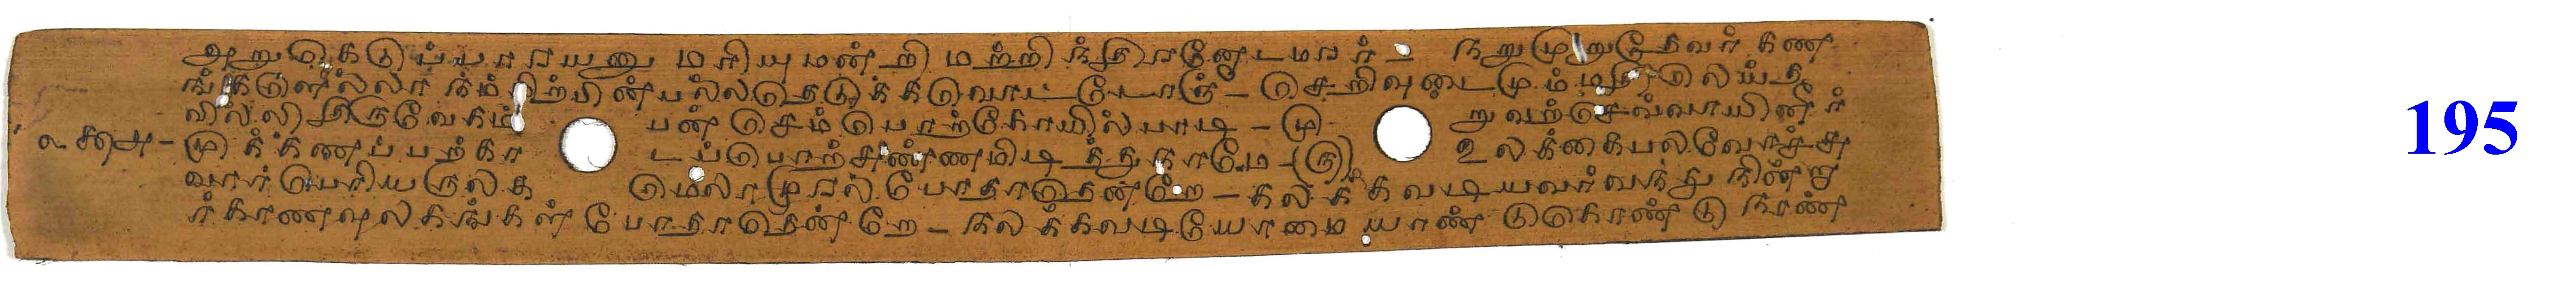 அறுகெடுப்பாரயனு மரியுமன்றி மற்றிந்திரனோடமரர் நறுமுறுதேவர்கண
ங்களெல்லா நம்மிற்பின்பல்லதெடுக்கவொட்டோஞ் செறிவுடைமும்மதிலெய்த
வில்லி திருவேகம்பன் செம்பொற்கோயில்பாடி - மு றுவற்செவ்வாயினீர்
முக்கணப்பற்கா டப்பொற்சுண்ணமிடித்துநாமே - (ரு) உலக்கைபலவோச்சு
வார்பெரியருலக மெலாமுரல்போதாதென்றே - கலக்கவடியவர்வந்துநின்று
ர்காணவுலகங்கள் போதாதென்றே - நலக்கவடியோமை யாண்டுகொண்டு நாண்
195